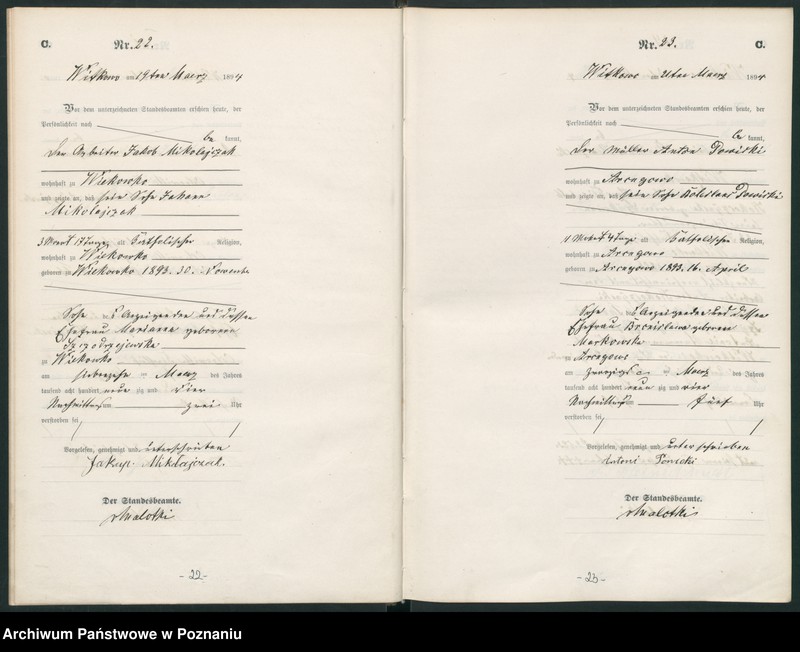 C.
Nr. 22.
Witkowo am 19ten Maerz 1894
Vor dem unterzeichneten Standesbeamten erschien heute, der
Persönlichkeit nach
be kannt,
Der Arbeiter Jakob Mikolajczak
wohnhaft zu Wiekowko
und zeigte an, daß sein Sohn Johann
Mikolajczak
3 Monat 17 Tage alt Katholischer Religion,
wohnhaft zu Wiekowko
geboren zu Wiekowko 1893. 30. November
Sohn des Anzeigenden und dessen
Ehefrau Marianna geborenen
zu Wiekowko
am siebenzehn ten Maerz des Jahres
tausend acht hundert neun zig und vier
Nachmittags um zwei Uhr
verstorben sei
Vorgelesen, genehmigt und unterschrieben
Jakup Mikołajczak.
Der Standesbeamte.
-22-
Nr. 23.
C.
Witkowo am 21ten Maerz 1894
Vor dem unterzeichneten Standesbeamten erschien heute, der
Persönlichkeit nach
be kannt,
Der Müller Anton
wohnhaft zu Arcugowo
und zeigte an, daß sein Sohn Boleslaus
11 Monat 4 Tage alt Katholischer Religion,
wohnhaft zu Arcugowo
geboren zu Arcugowo 1893. 16. April
Sohn des Anzeigenden und dessen
Ehefrau Bronislawa geborenen
Markowska
zu Arcugowo
am zwanzigsten Maerz des Jahres
tausend acht hundert neun zig und vier
Nachmittags um fünf Uhr
verstorben sei
Vorgelesen, genehmigt und unterschrieben
Antoni
Der Standesbeamte.
-23-
Archiwum Państwowe w Poznaniu